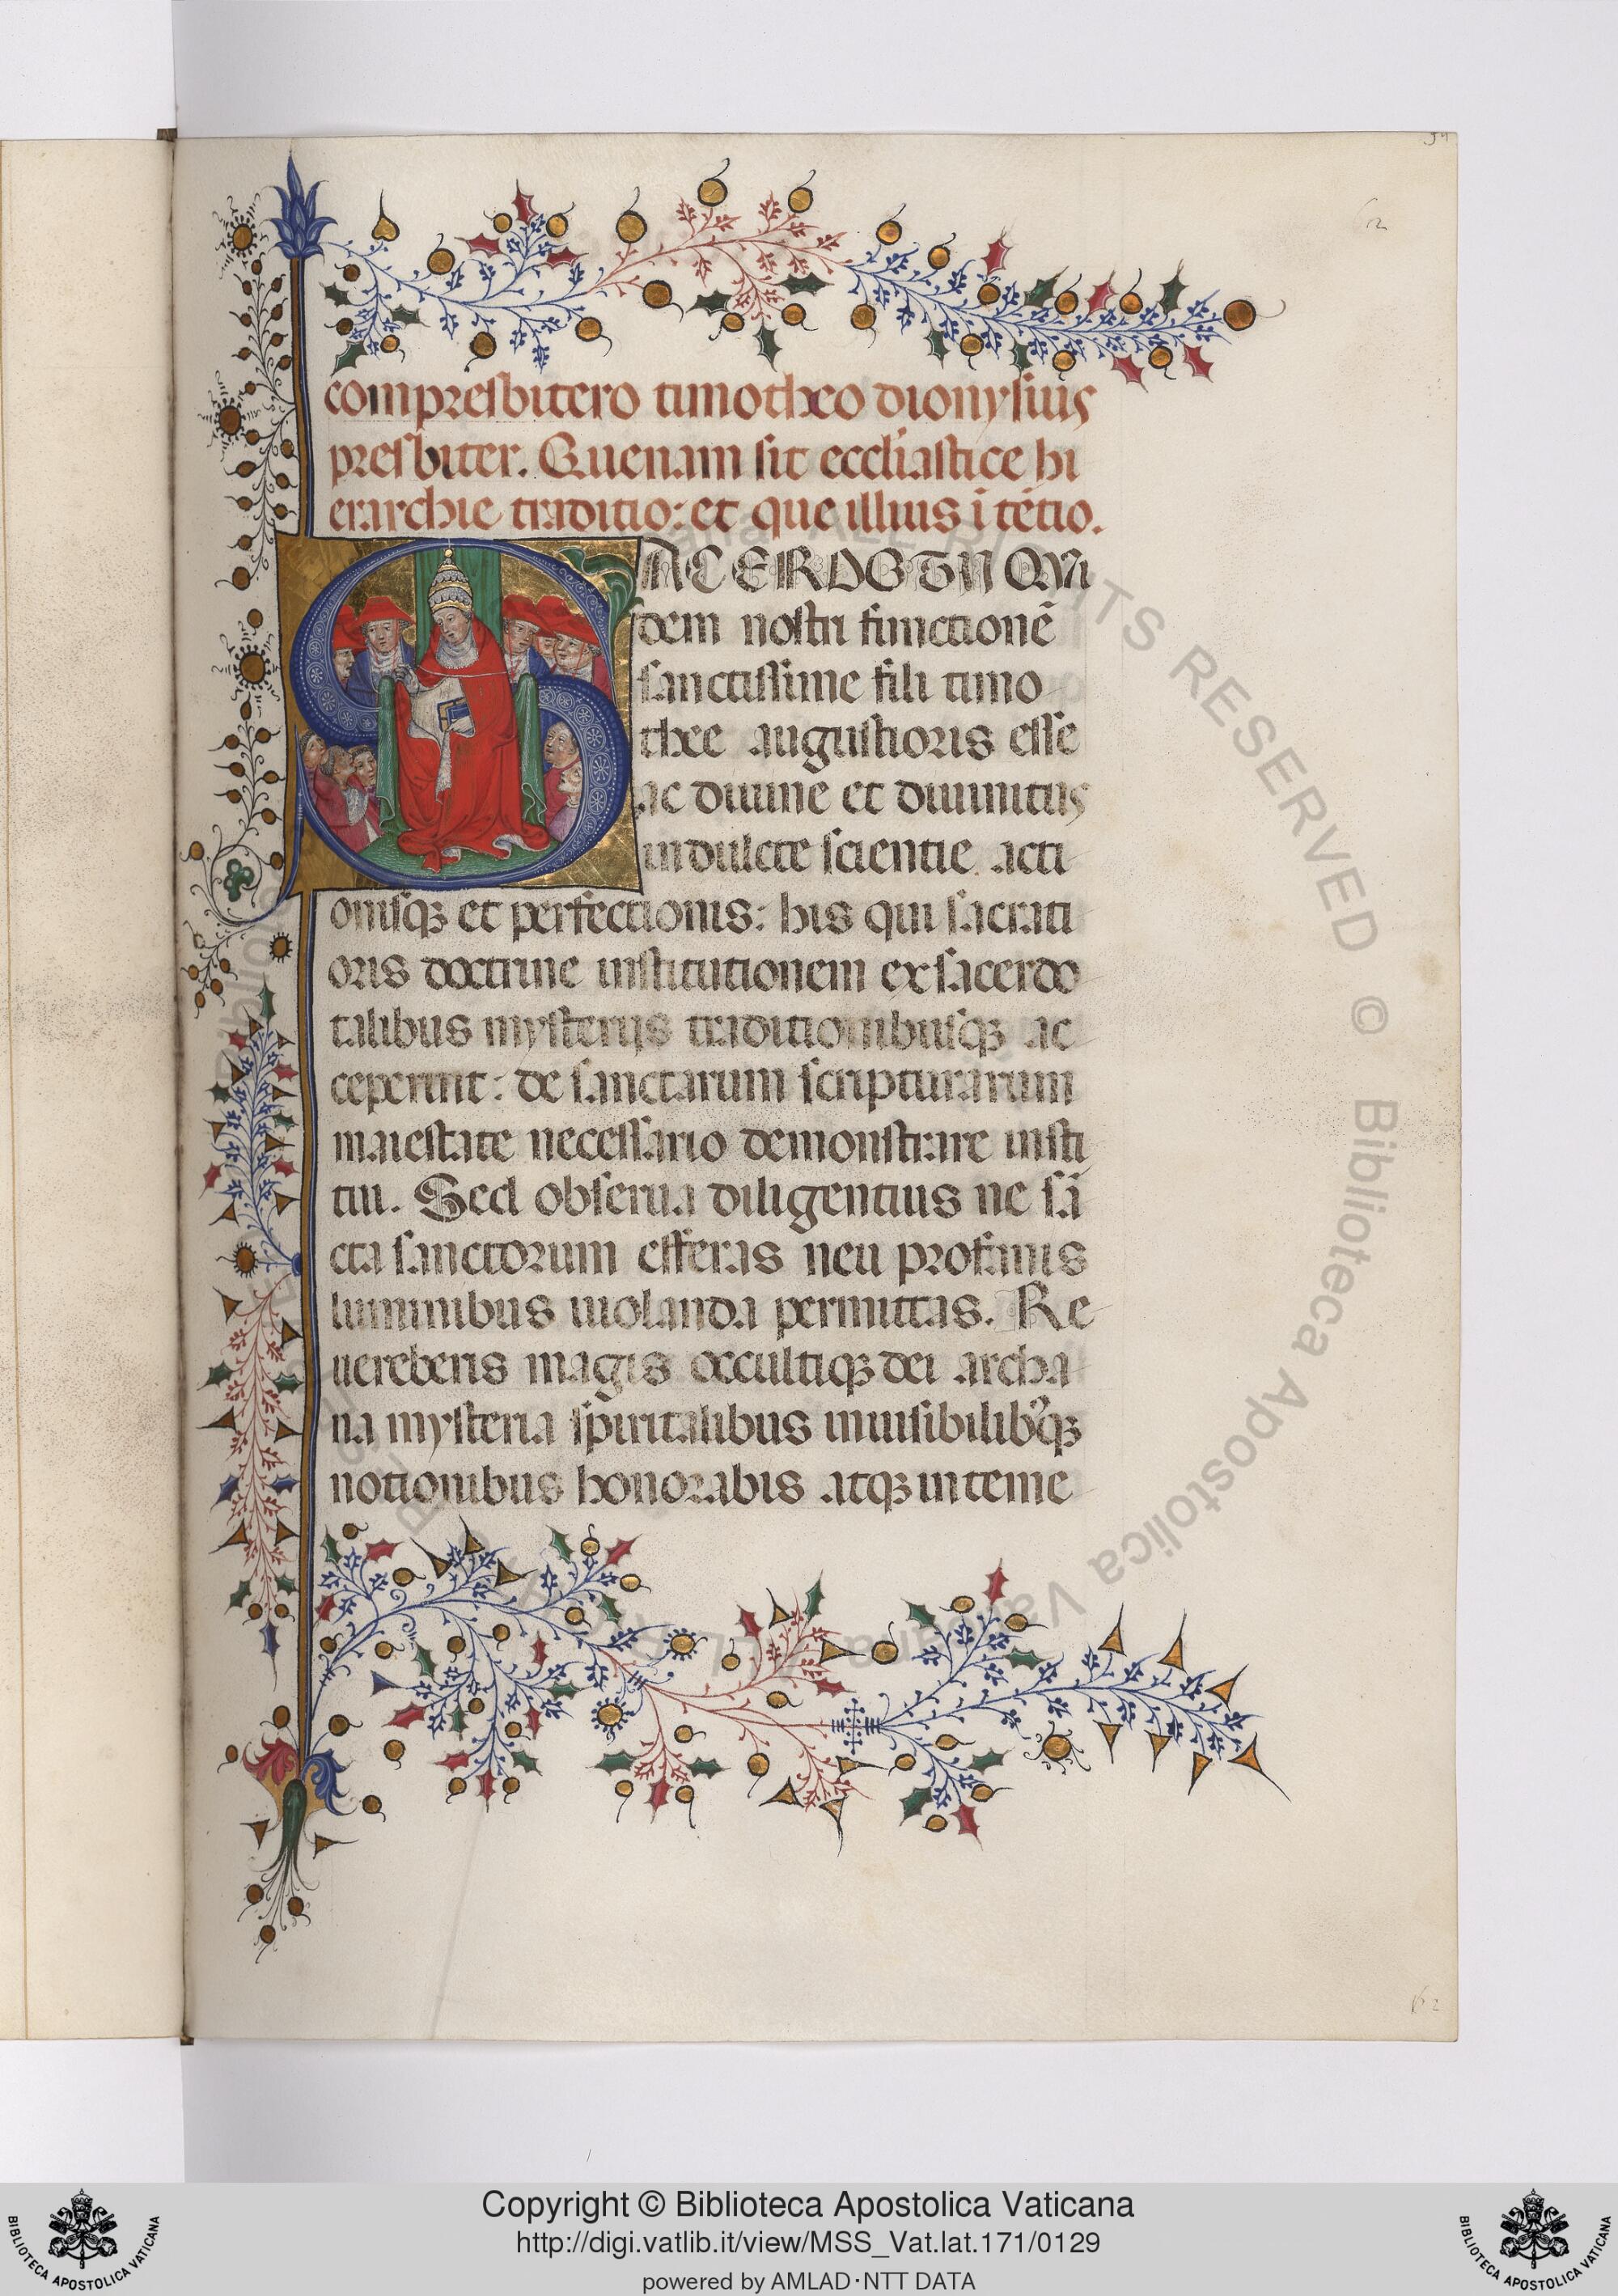 compresbitero timotheo dionysius
presbiter. Quenam sit eccl'iastice hi
erarchie traditio: et que illius ī tētio.
SACERDOTII QVI
dem nostri functionē
sanctissime fili timo
thee augustioris esse
ac diuine et diuinitus
indulcte scientie acti
onisqꝫ et perfectionis: his qui sacrati
oris doctrine institutionem ex sacerdo
talibus mysterijs traditionibusqꝫ ac
ceperint: de sanctarum scripturarum
maiestate necessario demonstrare insti
tui. Sed obserua diligentius ne sā
cta sanctorum efferas neu profanis
luminibus uiolanda permittas. Re
uereberis magis occultiqꝫ dei archa
na mysteria spiritalibus inuisibilib'qꝫ
notionibus honorabis atqꝫ inteme
Copyright © Biblioteca Apostolica Vaticana
http://digi.vatlib.it/view/MSS_Vat.lat.171/0129
powered by AMLAD·NTT DATA
BIBLIOTECA APOSTOLICA VATICANA
BIBLIOTECA APOSTOLICA VATICANA